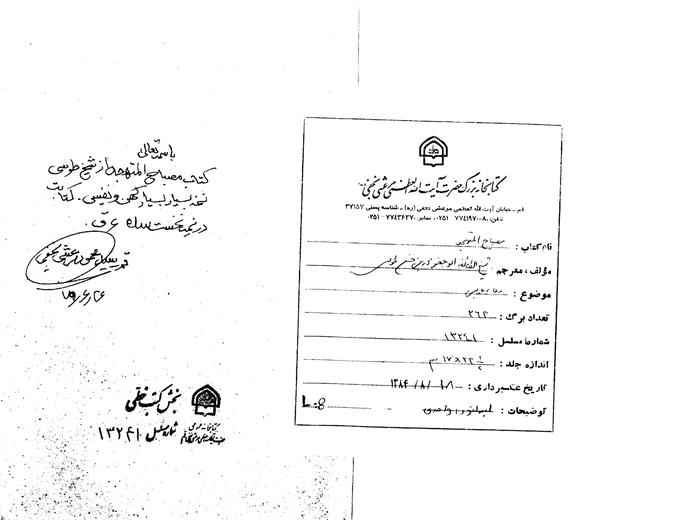 باسمه تعالی
کتاب مصباح المتهجد از شیخ طوسی
نسخه بسیار بسیار کهن و نفیس. کتابت
در نیمه نخست سده ۶ ق.
قم سید محمود مرعشی نجفی
بخش کتب خطی
شماره مسلسل ۱۳۲۴۱
کتابخانه بزرگ حضرت آیت الله العظمی مرعشی نجفی
قم ـ خیابان آیت الله العظمی مرعشی نجفی (ره) ـ شناسه پستی ۳۷۱۵۷
تلفن: ۸۰-۷۷۴۱۹۷۰ ۰۲۵۱، نمابر: ۷۷۴۳۶۳۷ ۰۲۵۱
نام کتاب : مصباح المتهجد
مؤلف ، مترجم : شیخ الطائفه ابوجعفر محمد بن حسن طوسی
موضوع :
تعداد برگ : ۲۶۴
شماره مسلسل : ۱۳۲۴۱
اندازه جلد : ۱۷×۲۳ سم
تاریخ عکسبرداری : ۱۳۸۴/۸/
توضیحات :
L:8